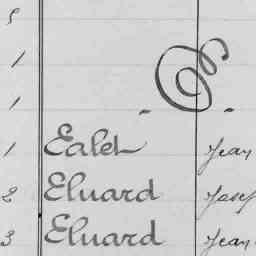 5
1
E
1 " "
1 Ealet Jean
2 Eluard Josep
3 Eluard Jean